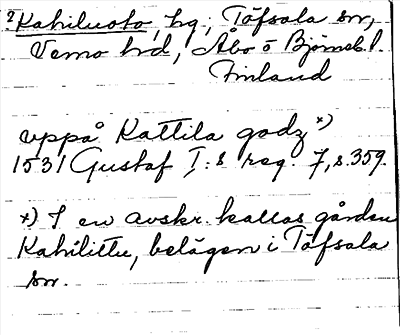 ?Kahiluoto, hg, Töfsala sn,
Vemo hd, Åbo o Björneb. l.
Finland
uppå Kattila godz x)
1531 Gustaf I:s reg. 7, s. 359.
x) I en avskr. kallas gården
Kahilittu, belägen i Töfsala
sn.